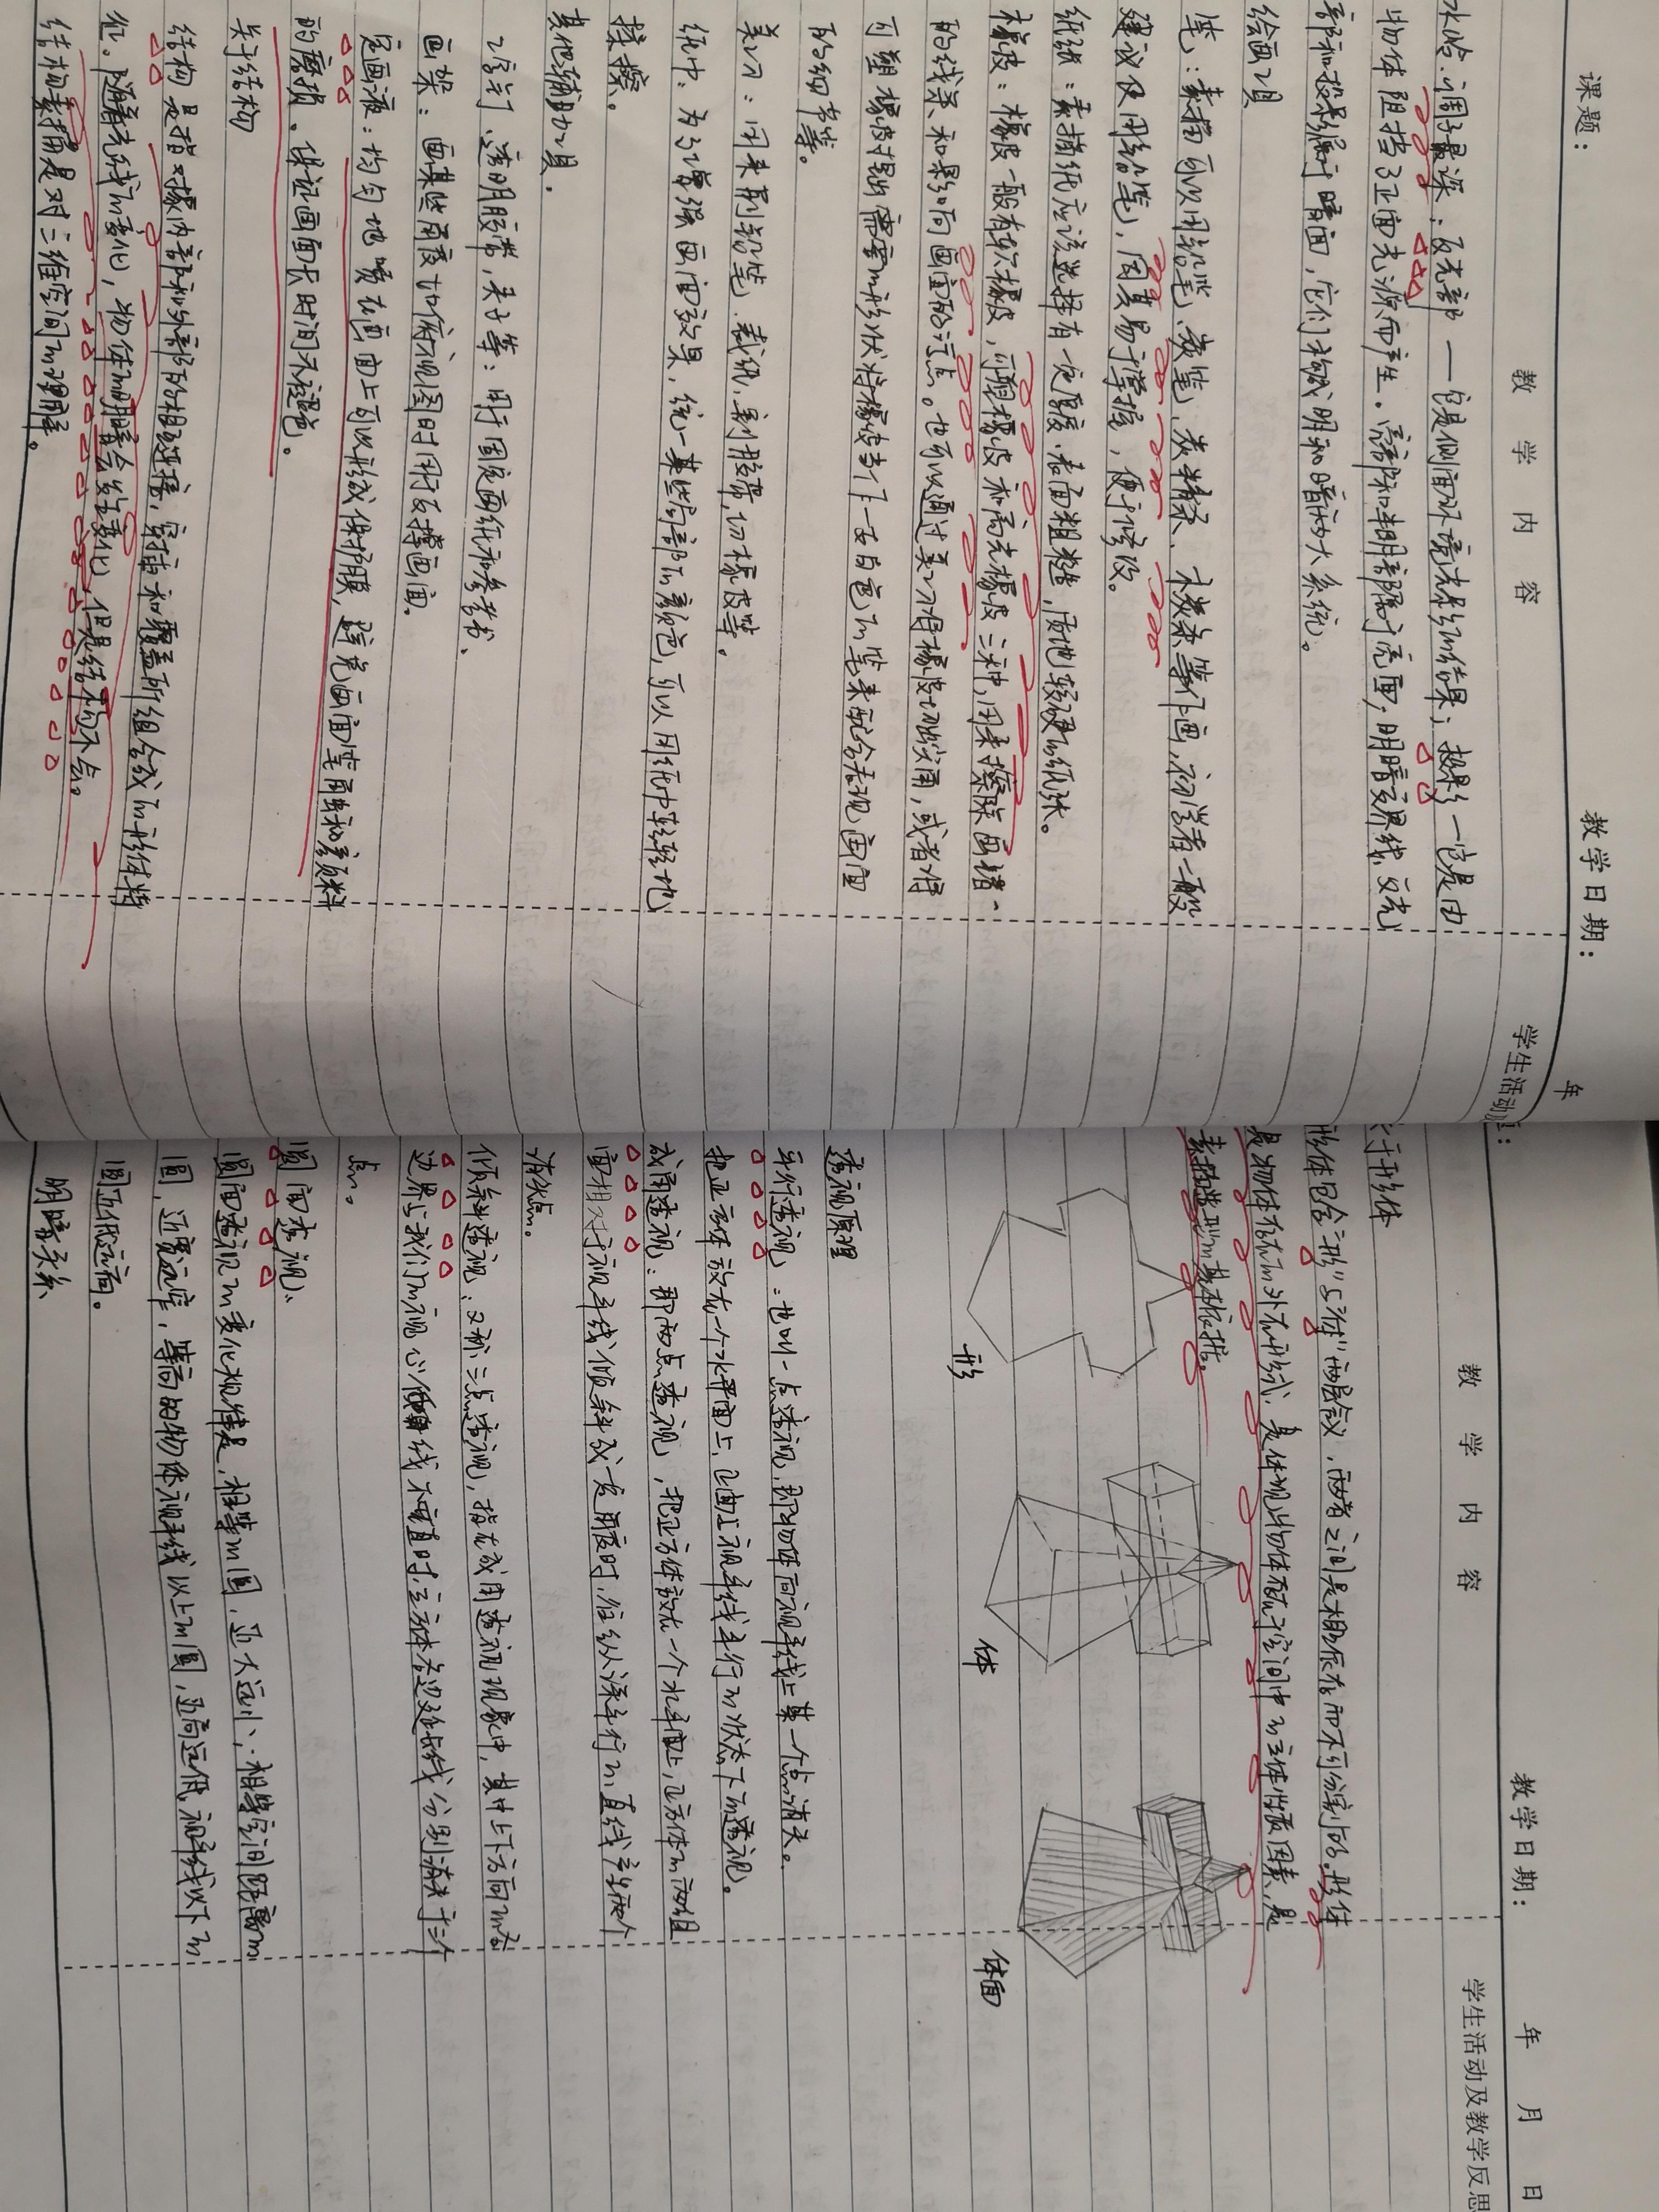 课题：
教学日期：
年
教 学 内 容
学生活动
水岭.调子最深；反光部——它是侧面环境光影的结果；投影一它是由
物体阻挡了正面光源而产生。高部和半明部属于亮面，明暗交界线、反光
部和投影属于暗面，它们构成明和暗两大系统。
绘画工具
笔：素描可以用铅笔、炭笔、炭精条、木炭条等作画，初学者一般
建议使用铅笔，因其易于掌握，便于修改。
纸张：素描纸应该选择有一定厚度.表面粗糙，质地较硬的纸张。
橡皮：橡皮一般有软橡皮，可塑橡皮和高光橡皮三种，用来擦除画错、
的线条和影响画面的污点。也可以通过美工刀将橡皮切成尖角，或者将
可塑橡皮捏出需要的形状将橡皮当作一支白色的笔来配合表现画面
的细节等。
美工刀：用来削铅笔.裁纸，割胶带，切橡皮等。
纸巾：为了增强画面效果，统一某些局部的颜色，可以用纸巾轻轻地
揉擦。
其他辅助工具.
工字钉、透明胶带，夹子等：用于固定画纸和参考书.
画架：画某些角度如俯视图时用于支撑画面.
定画液：均匀地喷在画面上可以形成保护膜，避免画面笔屑和颜料
的磨损，保证画面长时间不褪色。
关于结构
结构是指对象内部和外部的相互连接，穿插和覆盖所组合成的形体特
征。随着光线的变化，物体的明暗会发生变化，但是结构不会。
结构素描是对三维空间的理解。
教学日期：
年 月 日
教 学 内 容
学生活动及教学反思
关于形体
形体包含“形”与“体”两层含义，两者之间是相互依存而不可分割的.形体
是物体存在的外在形式、是体现物体存在于空间中的立体性质因素，是
素描造型的基本依据。
形
体
体面
透视原理
平行透视：也叫一点透视.即物体向视平线上某一个点消失。
把立方体放在一个水平面上，正面与视平线平行的状态下的透视。
成角透视：即两点透视，把立方体放在一个水平面上，正方体的两组
面相对于视平线倾斜成一定角度时，但纵深平行的直线产生两个
消失点。
倾斜透视：又称三点透视，指在成角透视现象中，其中上下方向的
边界与我们的视心线不垂直时，立方体各边延长线分别消失于三个
点。
圆面透视、
圆面透视的变化规律是，相等的圆，近大远小；相等空间距离的
圆，近宽远窄，等高的物体视平线以上的圆，近高远低，视平线以下的
圆近低远高。
明暗关系